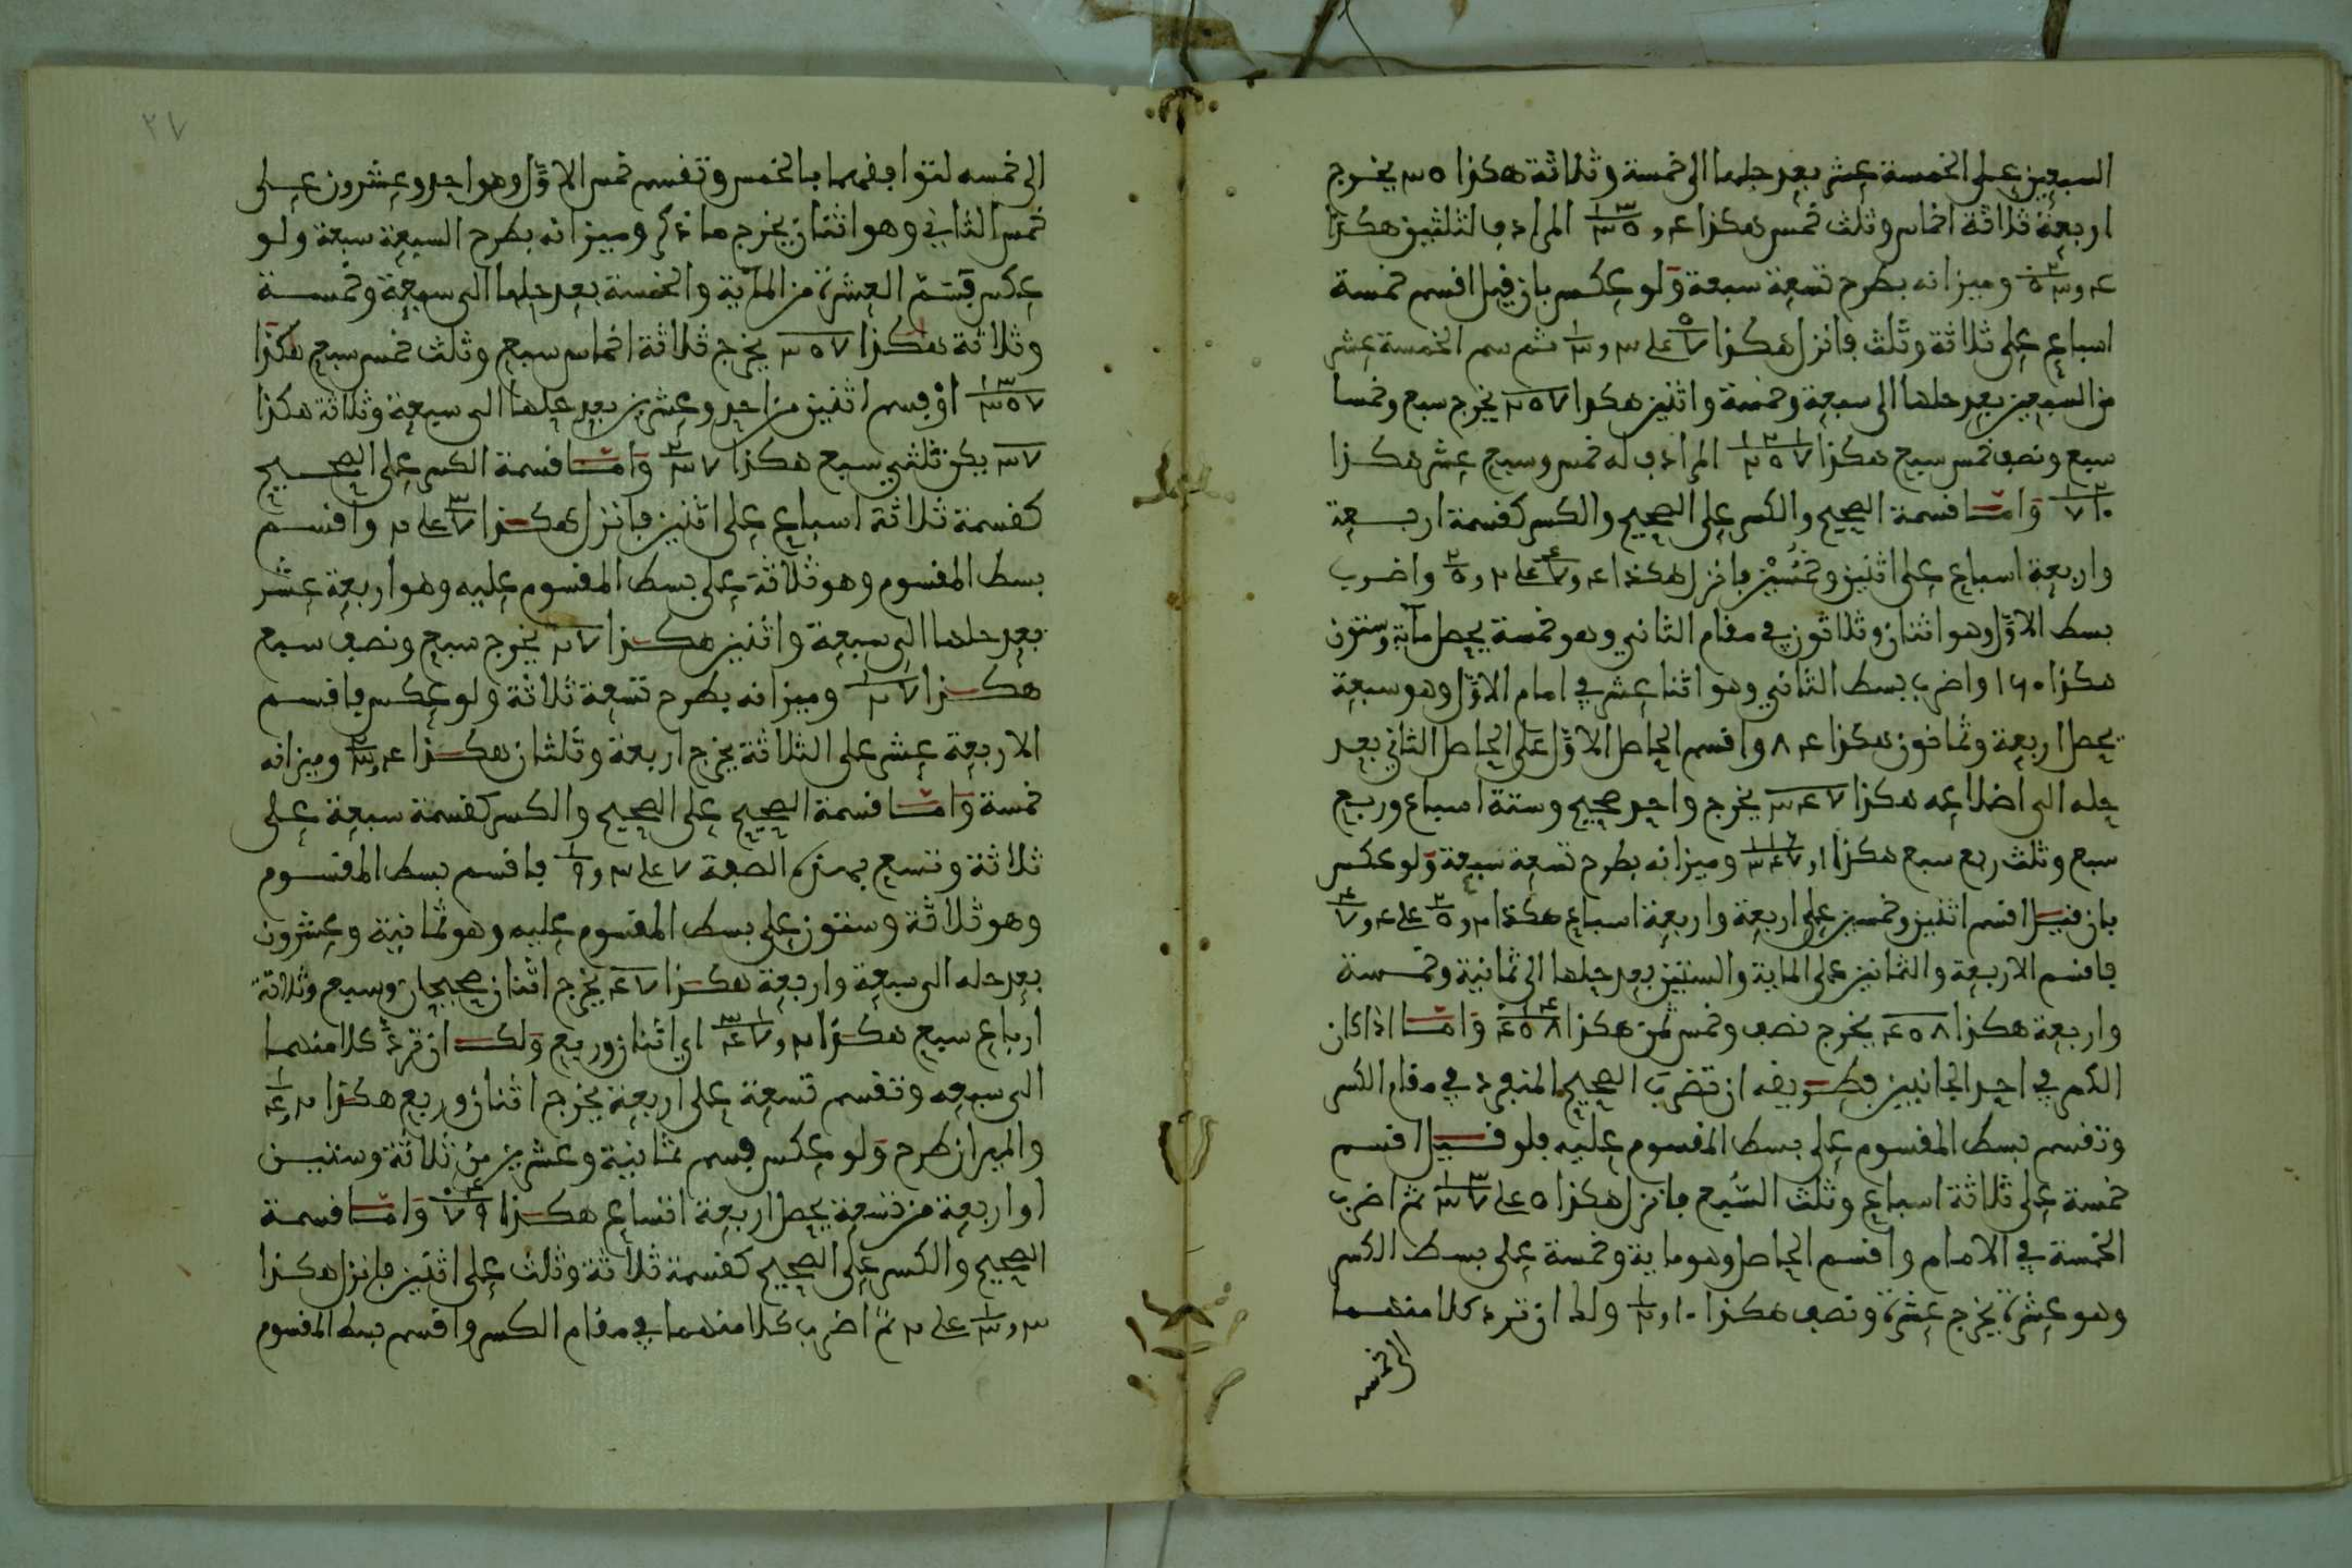 السبعين على الخمسة عشر بعد حلها الى خمسة وثلاثة هكذا ٥ ٣ يخرج
اربعة وثلاثة اخماس وثلث خمس هكذا المرادف لثلثين هكذا
وميزانه بطرح تسعة سبعة ولو عكس بان قيل اقسم خمسة
اسباع على ثلاثة وثلث فانزل هكذا ثم سم الخمسة عشر
من السبعين بعد حلها الى سبعة وخمسة واثنين هكذا ٧ ٥ ٢ يخرج سبع وخمسا
سبع ونصف خمس سبع هكذا المرادف له خمس وسبع عشر هكذا
وامّا قسمة الصحيح والكسر على الصحيح والكسر كقسمة اربعة
واربعة اسباع على اثنين وخُمُسَيْن فانزل هكذا واضرب
بسط الاوّل وهو اثنان وثلاثون في مقام الثاني وهو خمسة يحصل مآية وستون
هكذا ١٦٠ واضرب بسط الثاني وهو اثنا عشر في امام الاوّل وهو سبعة
يحصل اربعة وثمانون هكذا ٨٤ واقسم الحاصل الاوّل على الحاصل الثاني بعد
حله الى اضلاعه هكذا ٧ ٤ ٣ يخرج واحد صحيح وستة اسباع وربع
سبع وثلث ربع سبع هكذا وميزانه بطرح تسعة سبعة ولو عكس
بان قيل اقسم اثنين وخمسين على اربعة واربعة اسباع هكذا
فاقسم الاربعة والثمانين على الماية والستين بعد حلها الى ثمانية وخمسة
واربعة هكذا ٨ ٥ ٤ يخرج نصف وخمس ثمن هكذا وامّا اذا كان
الكسر في احد الجانبين فطريقه ان تضرب الصحيح المنفرد في مقام الكسر
وتقسم بسط المقسوم على بسط المقسوم عليه فلو قيل اقسم
خمسة على ثلاثة اسباع وثلث السُّبع فانزل هكذا ثم اضرب
الخمسة في الامام واقسم الحاصل وهو ماية وخمسة على بسط الكسر
وهو عشرة يخرج عشرة ونصف هكذا ولك ان ترد كلا منهما
الى خمسه
٢٧
الى خمسه لتوافقهما بالخمس وتقسم خمس الاوّل وهو احد وعشرون على
خمس الثاني وهو اثنان يخرج ما ذكر وميزانه بطرح السبعة سبعة ولو
عكس قسم العشرة من الماية والخمسة بعد حلها الى سبعة وخمسة
وثلاثة هكذا ٧ ٥ ٣ يخرج ثلاثة اخماس سبع وثلث خمس سبع هكذا
او قسم اثنين من احد وعشرين بعد حلها الى سبعة وثلاثة هكذا
٧ ٣ يكن ثلثي سبع هكذا وامّا قسمة الكسر على الصحيح
كقسمة ثلاثة اسباع على اثنين فانزل هكذا واقسم
بسط المقسوم وهو ثلاثة على بسط المقسوم عليه وهو اربعة عشر
بعد حلها الى سبعة واثنين هكذا ٧ ٢ يخرج سبع ونصف سبع
هكذا وميزانه بطرح تسعة ثلاثة ولو عكس فاقسم
الاربعة عشر على الثلاثة يخرج اربعة وثلثان هكذا وميزانه
خمسة وامّا قسمة الصحيح على الصحيح والكسر كقسمة سبعة على
ثلاثة وتسع بهذه الصفة فاقسم بسط المقسوم
وهو ثلاثة وستون على بسط المقسوم عليه وهو ثمانية وعشرون
بعد حله الى سبعة واربعة هكذا ٧ ٤ يخرج اثنان صحيحان وسبع وثلاثة
ارباع سبع هكذا اي اثنان وربع ولك ان ترد كلا منهما
الى سبعه وتقسم تسعة على اربعة يخرج اثنان وربع هكذا
والميزان طرح ولو عكس قسم ثمانية وعشرين من ثلاثة وستين
او اربعة من تسعة يحصل اربعة اتساع هكذا وامّا قسمة
الصحيح والكسر على الصحيح كقسمة ثلاثة وثلث على اثنين فانزل هكذا
ثم اضرب كلا منهما في مقام الكسر واقسم بسط المقسوم